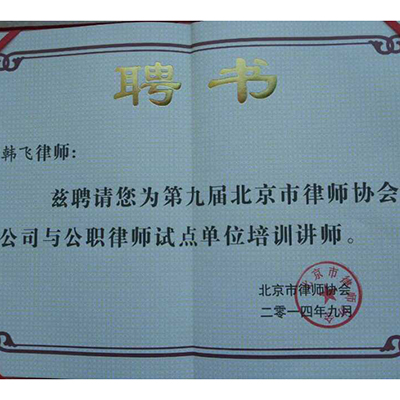 聘书
韩飞律师：
兹聘请您为第九届北京市律师协会
公司与公职律师试点单位培训讲师。
北京市律师协会
二零一四年九月
北京市律师协会